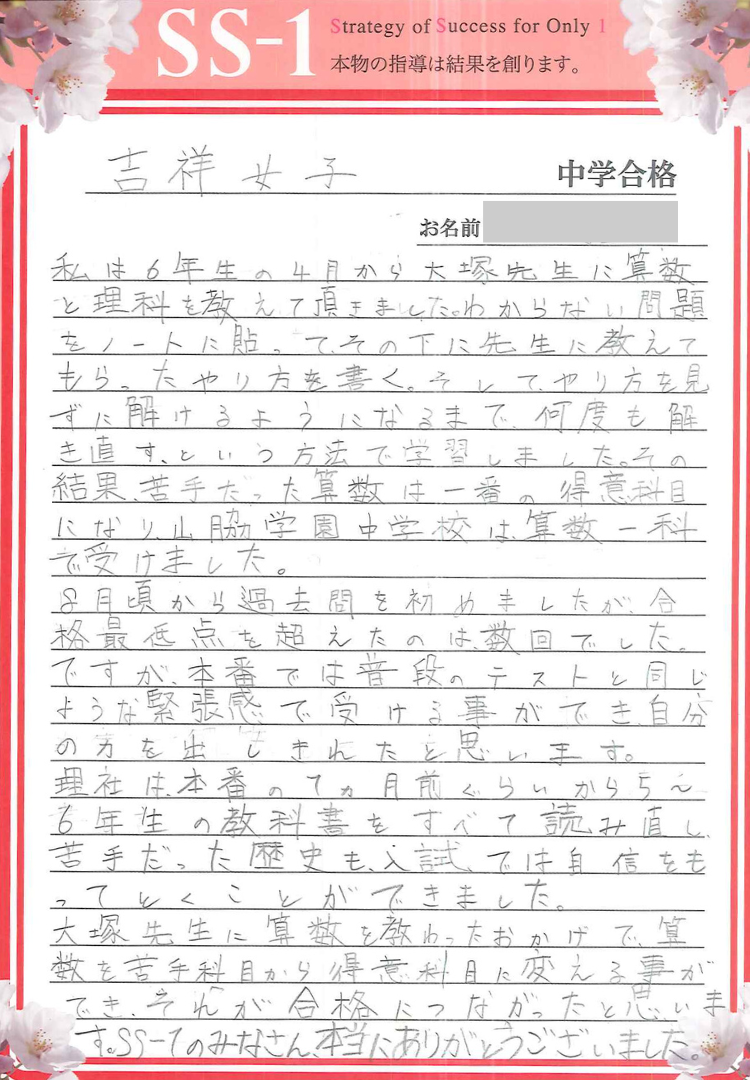 SS-1
Strategy of Success for Only 1
本物の指導は結果を創ります。
吉祥女子 中学合格
お名前
私は6年生の4月から大塚先生に算数
と理科を教えて頂きました。わからない問題
をノートに貼って、その下に先生に教えて
もらったやり方を書く。そして、やり方を見
ずに解けるようになるまで、何度も解
き直す、という方法で学習しました。その
結果、苦手だった算数は一番の得意科目
になり、山脇学園中学校は、算数一科
で受けました。
8月頃から過去問を初めましたが、合
格最低点を超えたのは、数回でした。
ですが、本番では普段のテストと同じ
ような緊張感で受ける事ができ、自分
の力を出しきれたと思います。
理社は、本番の1ヵ月前ぐらいから5~
6年生の教科書をすべて読み直し、
苦手だった歴史も、入試では自信をも
ってとくことができました。
大塚先生に算数を教わったおかげで、算
数を苦手科目から得意科目に変える事が
でき、それが合格につながったと思いま
す。SS-1のみなさん、本当にありがとうございました。